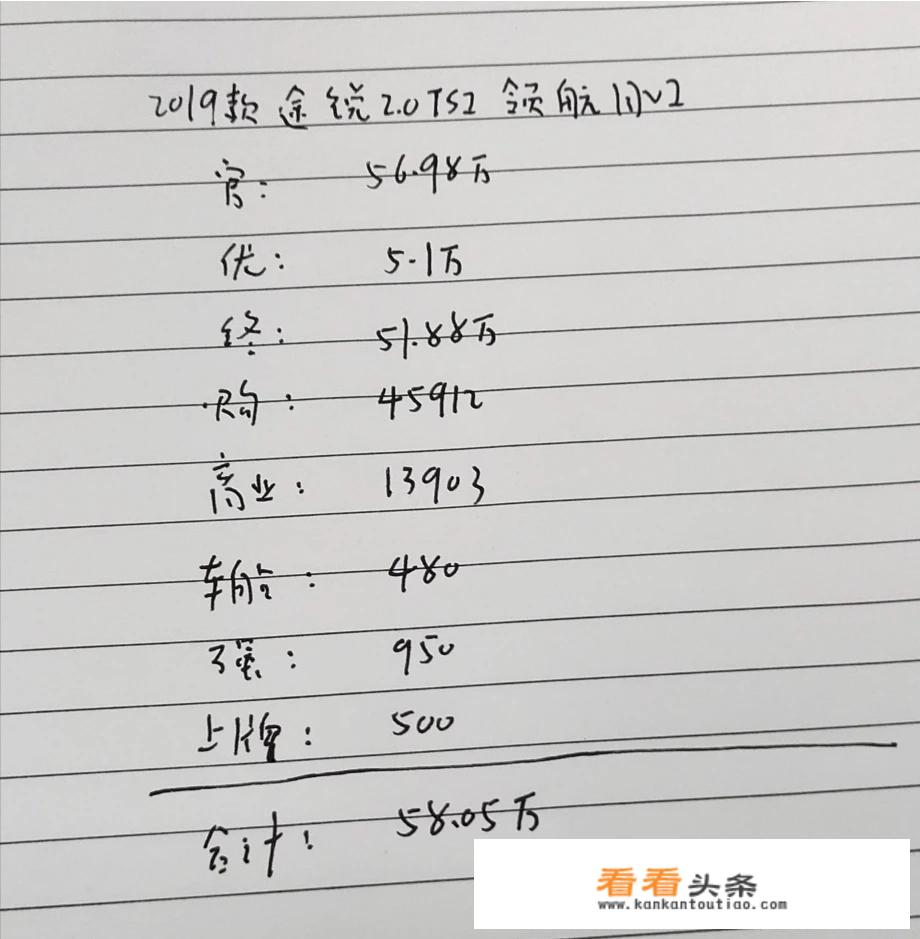 2019款 途锐2.0TSI 领航 国V2
官: 56.98万
优: 5.1万
终: 51.88万
购: 45912
商业: 13903
车船: 480
交强: 950
上牌: 500
合计: 58.05万
看看头条
www.kankantoutiao.com